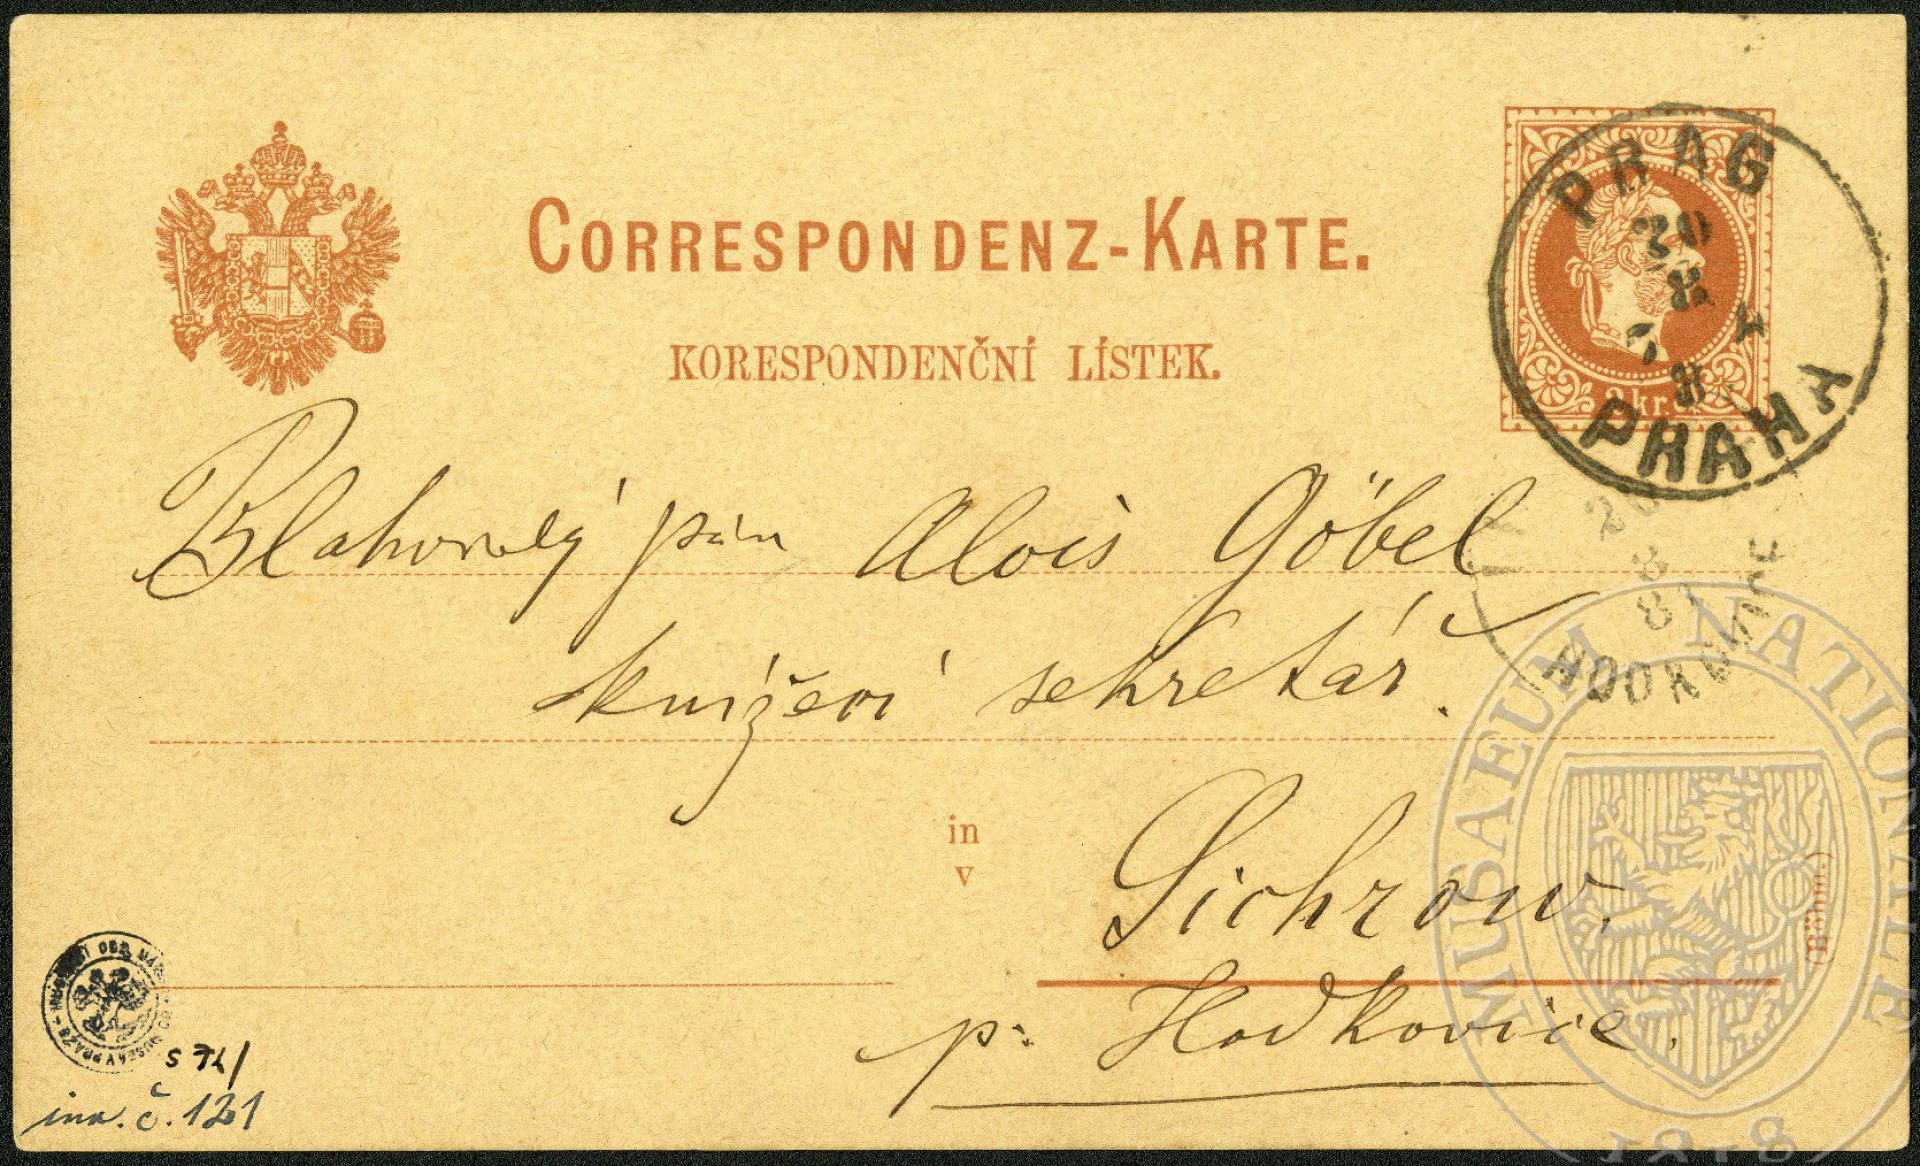 CORRESPONDENZ-KARTE.
KORESPONDENČNÍ LÍSTEK.
2 kr.
PRAG
20
8
8
PRAHA
Blahorodý pán Alois Göbel
knížecí sekretář.
20
8
HODKOVICE
in
v
Sichrow.
p. Hodkovice.
(Böhm.)
S 76/
inv. č. 121
MUSAEUM NATIONALE
1818